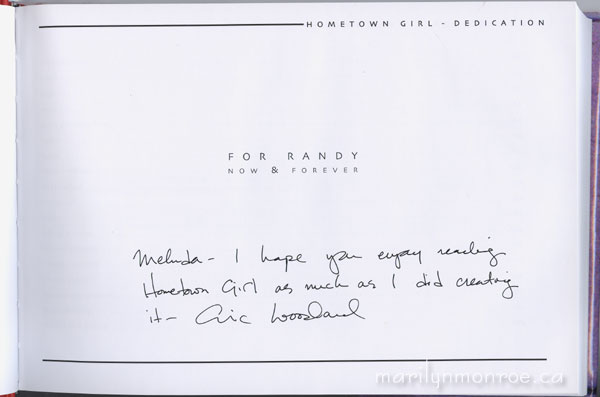 HOMETOWN GIRL - DEDICATION
FOR RANDY
NOW & FOREVER
Melinda - I hope you enjoy reading
Hometown Girl as much as I did creating
it - Eric Woodard
marilynmonroe.ca